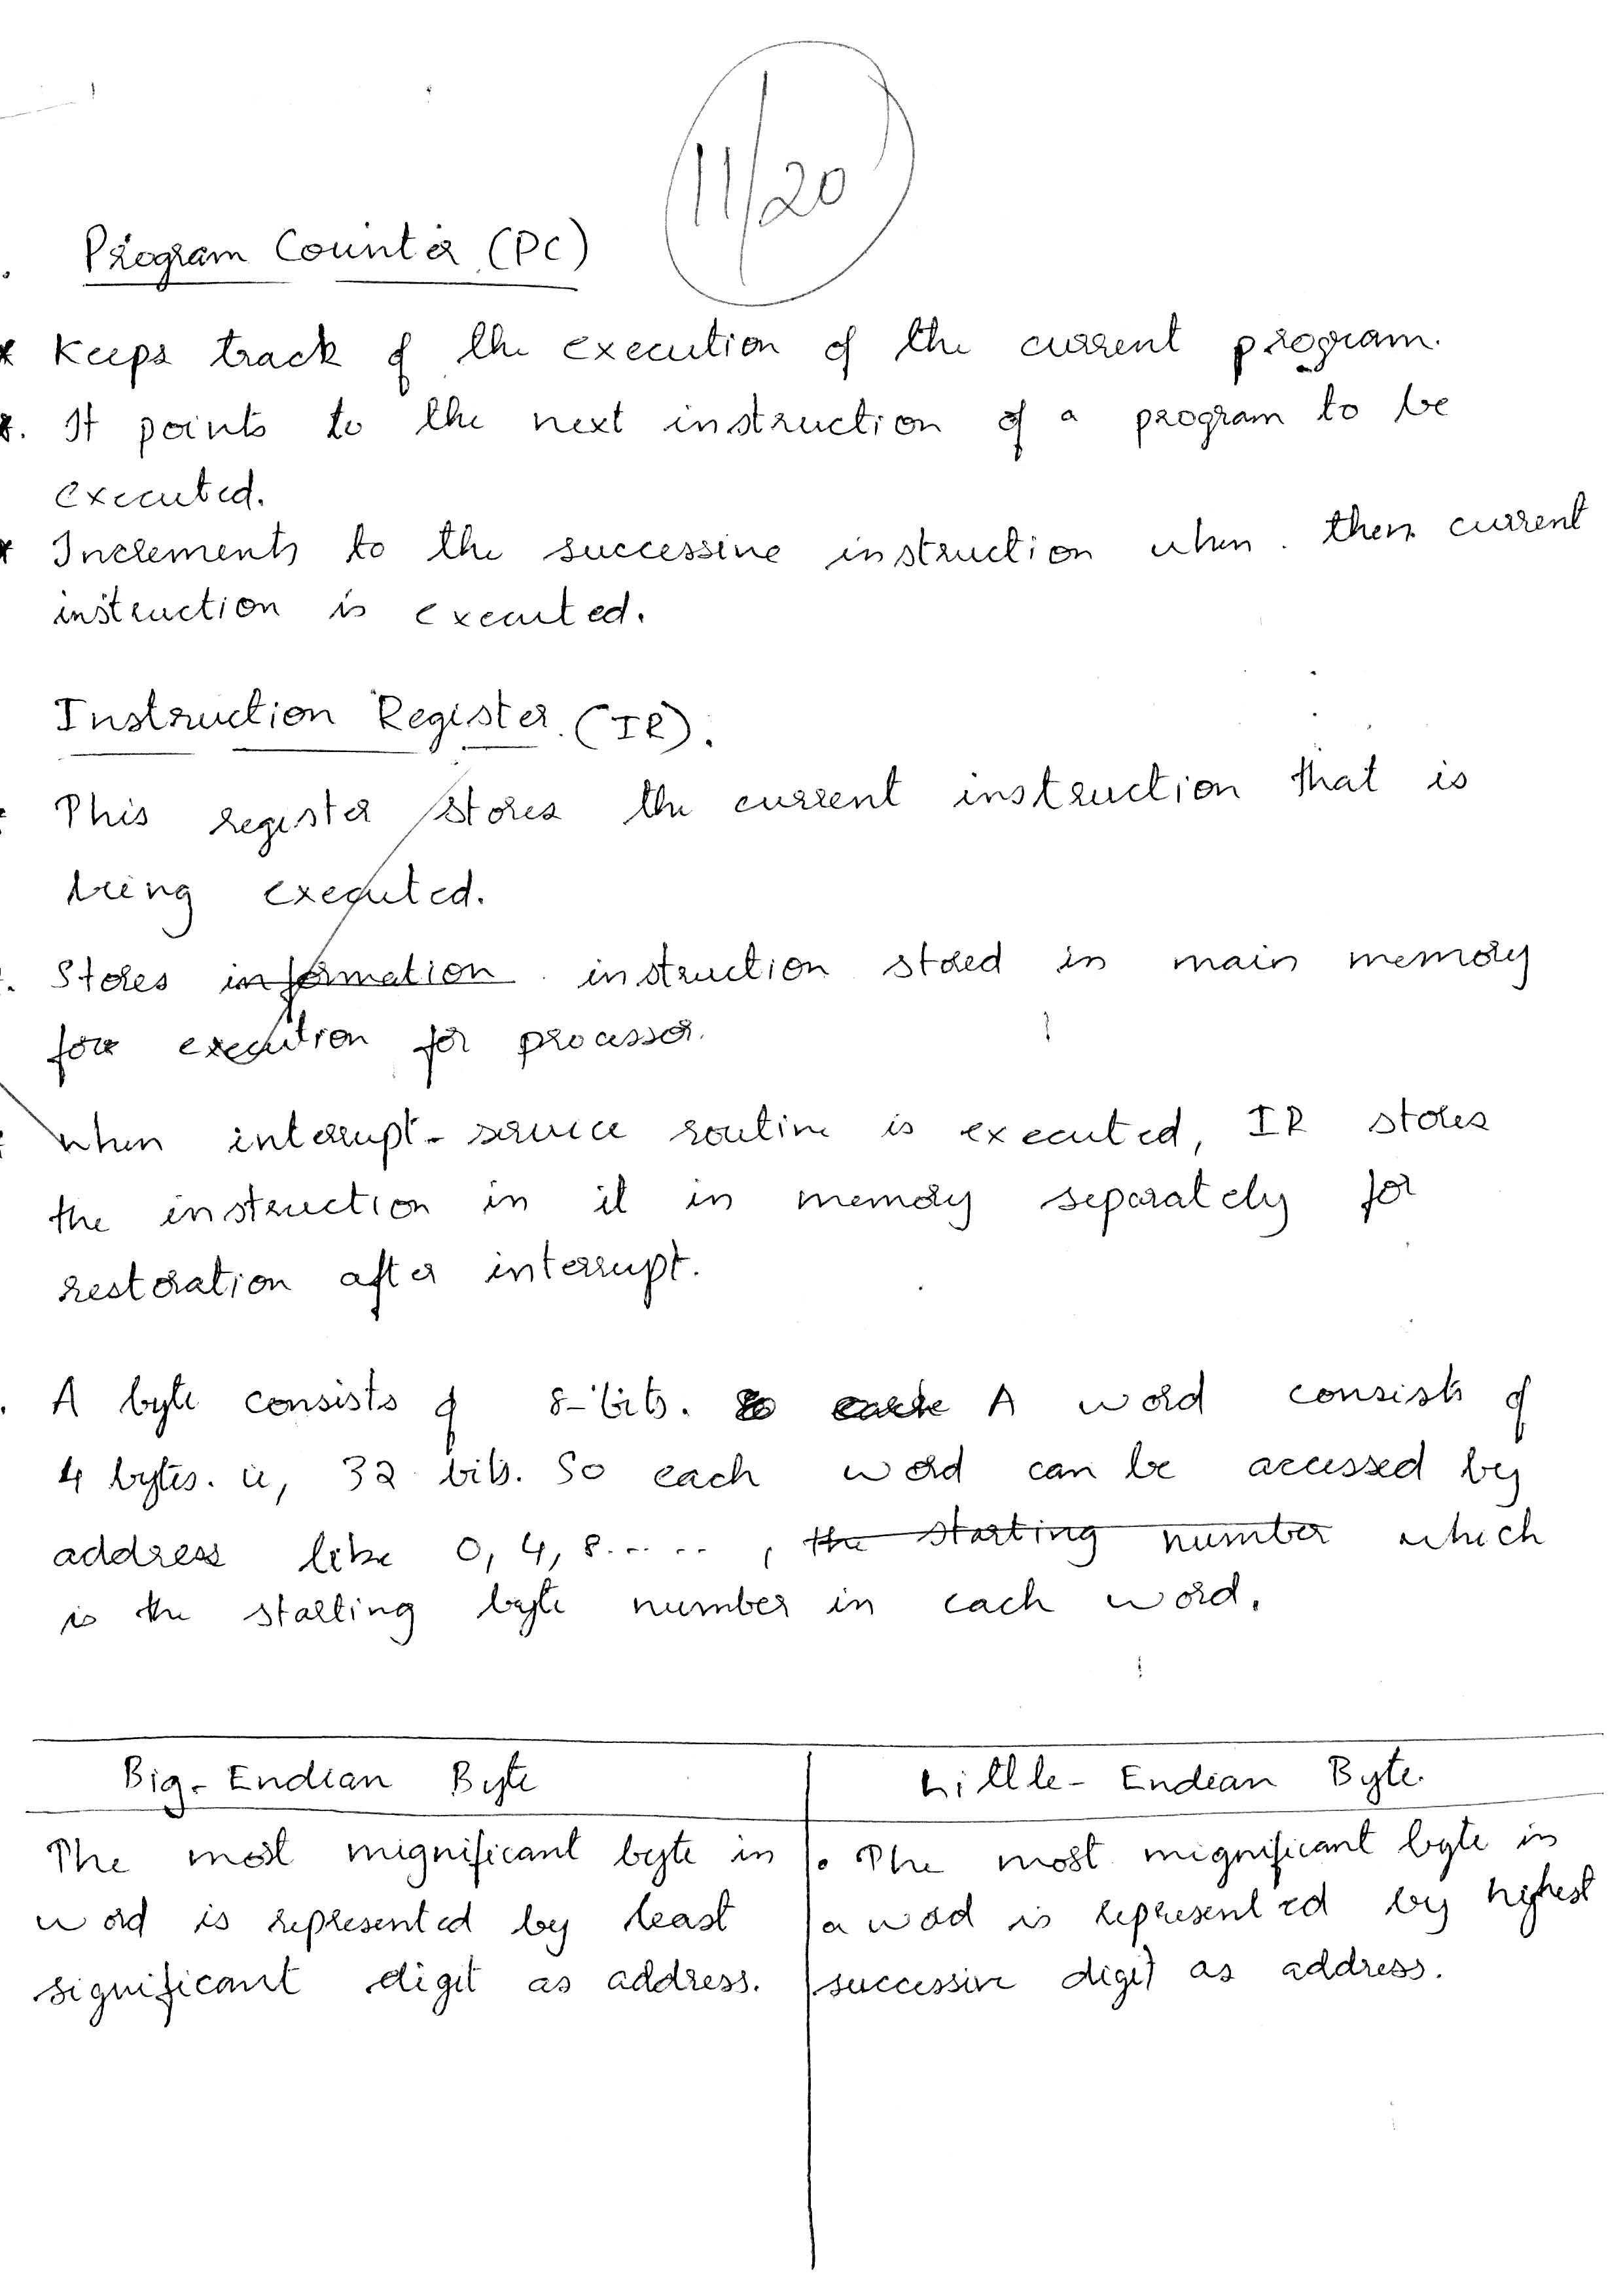 11/20
Program Counter (PC)
* Keeps track of the execution of the current program.
*. It points to the next instruction of a program to be
executed.
* Increments to the successive instruction when then current
instruction is executed.
Instruction Register (IR).
This register stores the current instruction that is
being executed.
. Stores information instruction stored in main memory
for execution for processor.
when interrupt-service routine is executed, IR stores
the instruction in it in memory separately for
restoration after interrupt.
. A byte consists of 8-bits. So each A word consists of
4 bytes. ie, 32 bits. So each word can be accessed by
address like 0, 4, 8......, the starting number which
is the starting byte number in each word.
Big-Endian Byte | Little-Endian Byte.
The most mignificant byte in | • The most mignificant byte in
word is represented by least | a word is represented by highest
significant digit as address. | successive digit as address.